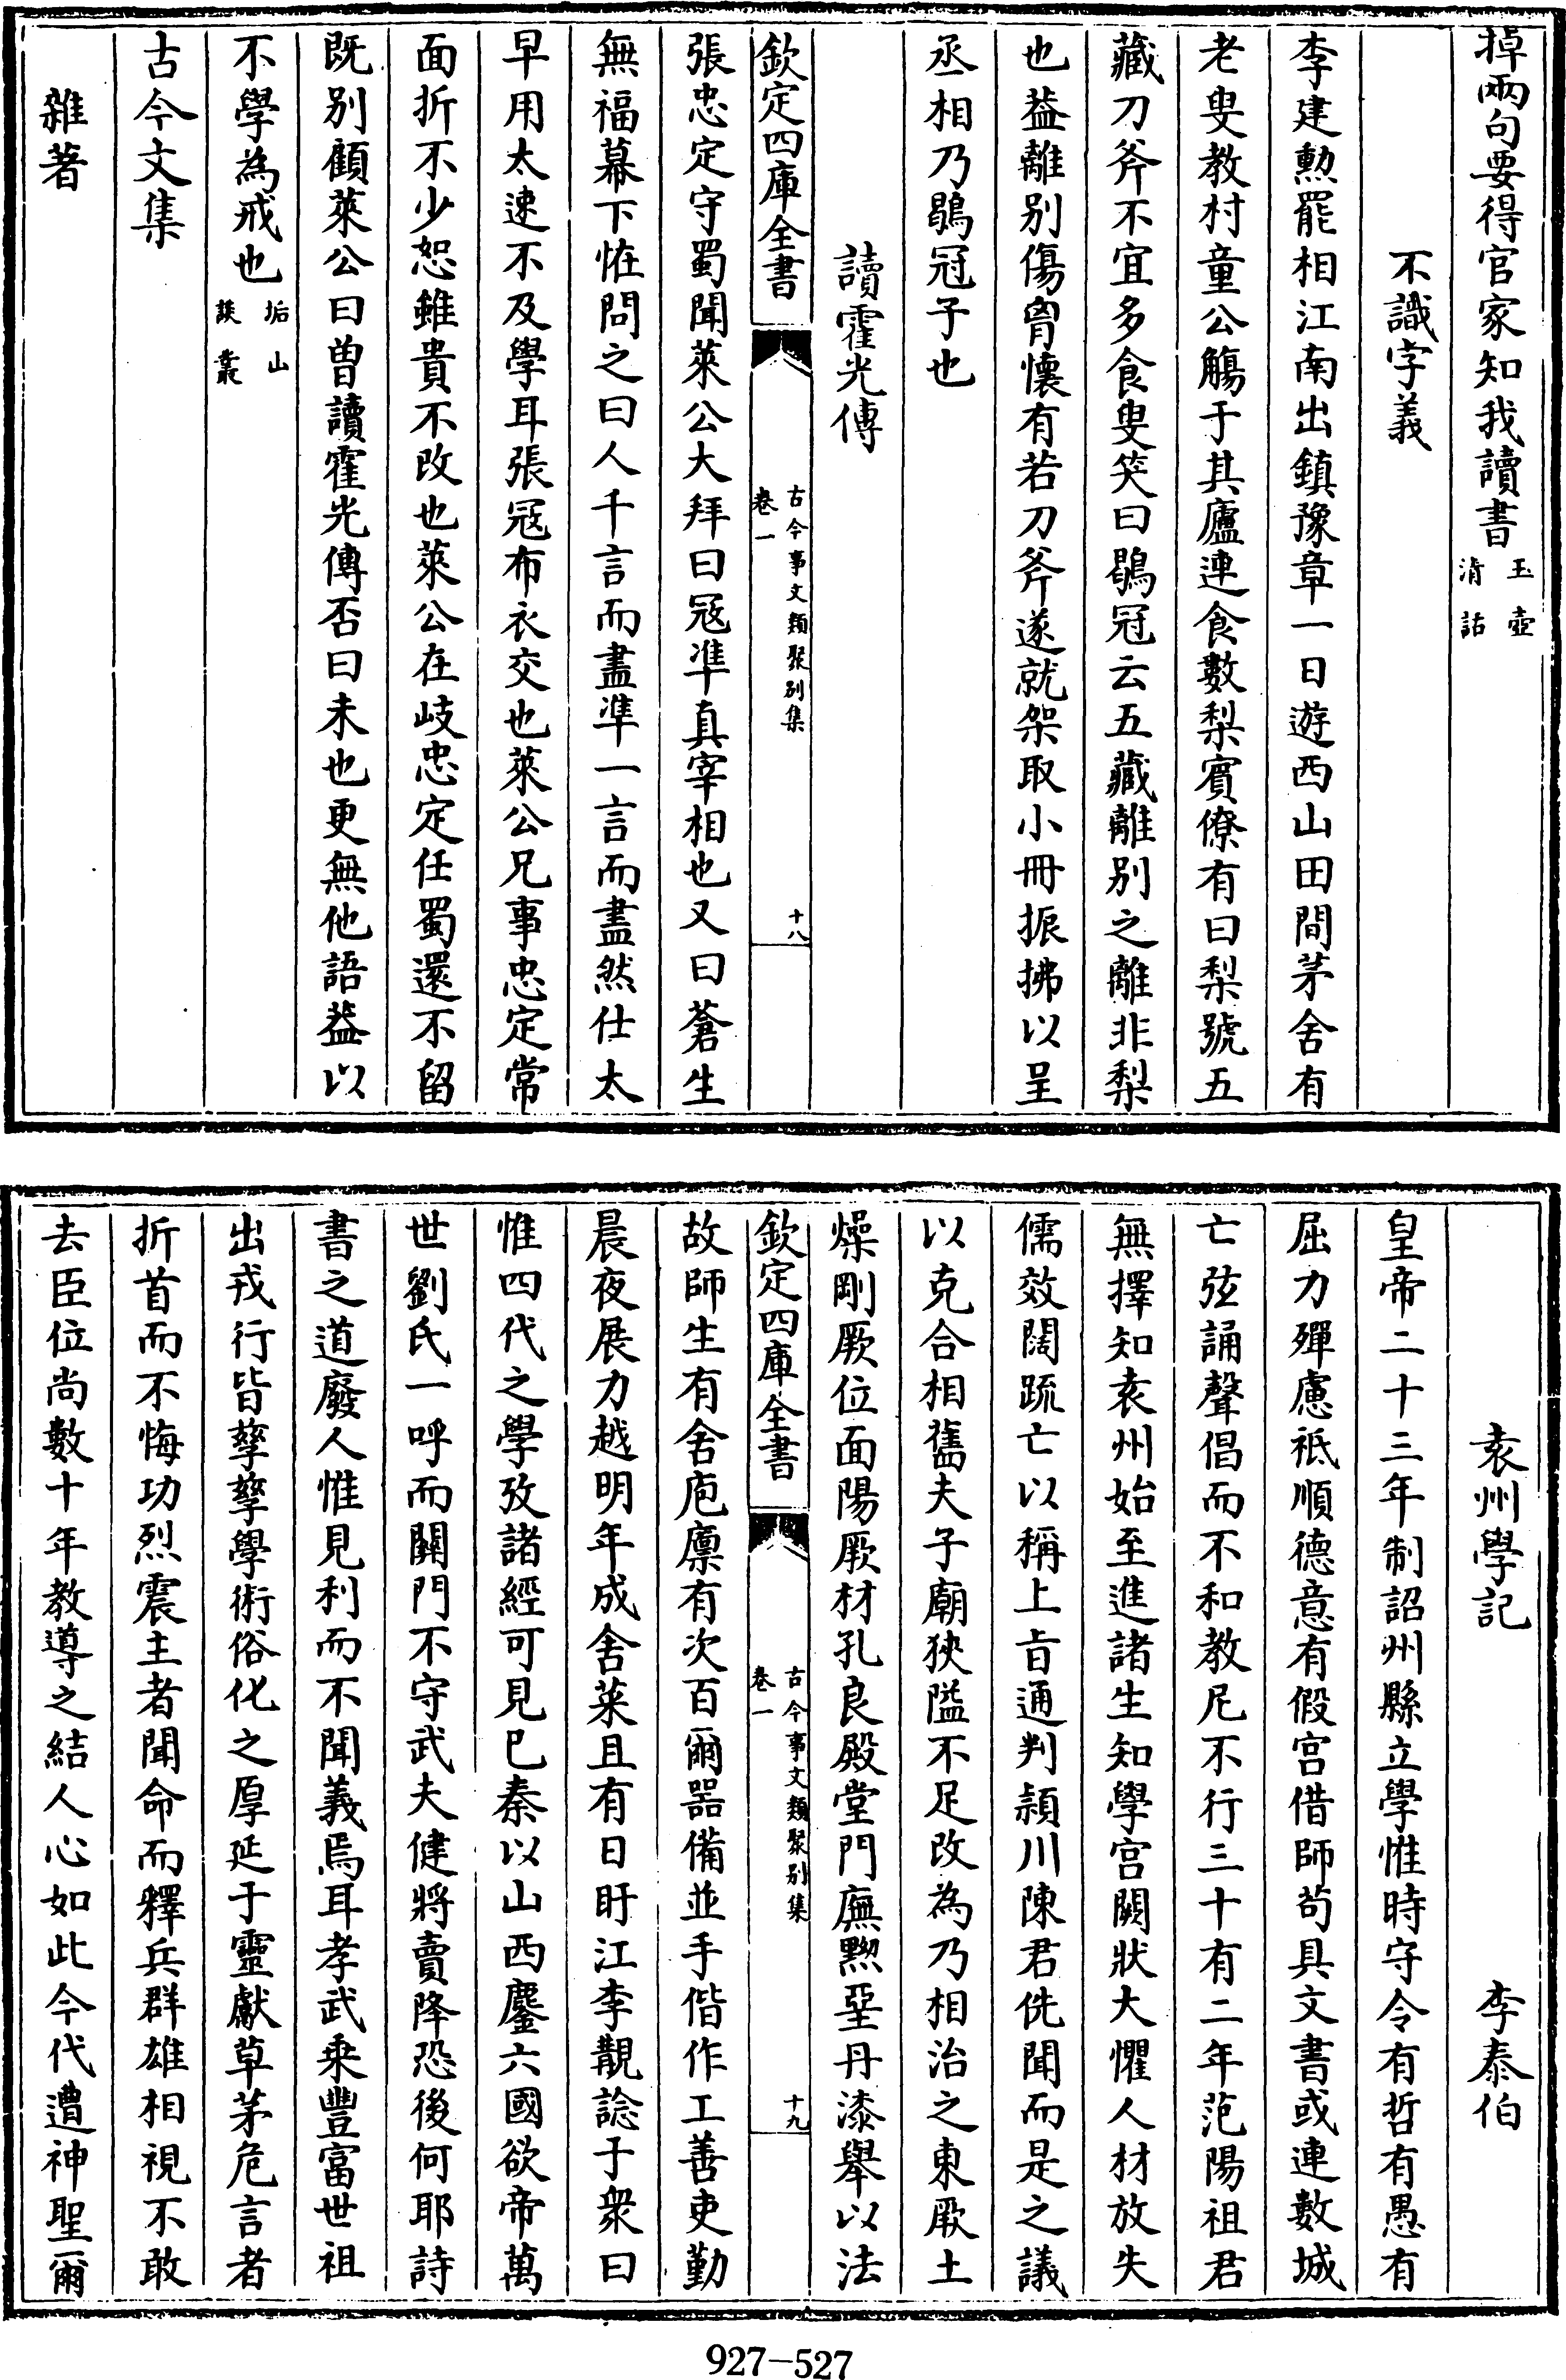 掉兩句要得官家知我讀書玉壺清話
不識字義
李建勲罷相江南出鎮豫章一日遊西山田間茅舍有
老叟教村童公觴于其廬連食數梨賓僚有曰梨號五
藏刀斧不宜多食叟笑曰鶡冠云五藏離别之離非梨
也葢離别傷胷懷有若刀斧遂就架取小冊振拂以呈
丞相乃鶡冠子也
讀霍光傳
欽定四庫全書
古今事文類聚别集
卷一
十八
張忠定守蜀聞萊公大拜曰冦凖真宰相也又曰蒼生
無福幕下恠問之曰人千言而盡凖一言而盡然仕太
早用太速不及學耳張冦布衣交也萊公兄事忠定常
面折不少恕雖貴不改也萊公在岐忠定任蜀還不留
既别顧萊公曰曾讀霍光傳否曰未也更無他語葢以
不學為戒也垢山談叢
古今文集
雜著
袁州學記 李泰伯
皇帝二十三年制詔州縣立學惟時守令有哲有愚有
屈力殫慮祗順德意有假宫借師苟具文書或連數城
亡弦誦聲倡而不和教尼不行三十有二年范陽祖君
無擇知袁州始至進諸生知學宫闕狀大懼人材放失
儒效闊疏亡以稱上㫖通判潁川陳君侁聞而是之議
以克合相舊夫子廟狹隘不足改為乃相治之東厥土
燥剛厥位面陽厥材孔良殿堂門廡黝堊丹漆舉以法
欽定四庫全書
古今事文類聚别集
卷一
十九
故師生有舍庖廩有次百爾器備並手偕作工善吏勤
晨夜展力越明年成舍菜且有日盱江李覯諗于衆曰
惟四代之學攷諸經可見已秦以山西鏖六國欲帝萬
世劉氏一呼而關門不守武夫健將賣降恐後何耶詩
書之道廢人惟見利而不聞義焉耳孝武乘豐富世祖
出戎行皆孳孳學術俗化之厚延于靈獻草茅危言者
折首而不悔功烈震主者聞命而釋兵群雄相視不敢
去臣位尚數十年教導之結人心如此今代遭神聖爾
927-527